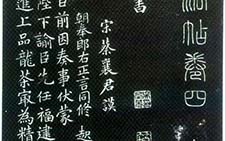 帖卷四
書
宋蔡襄君謨
朝奉郎右正言同修起
前因奏事伏蒙
陛下諭臣先任福建
進上品龍茶㝡為精